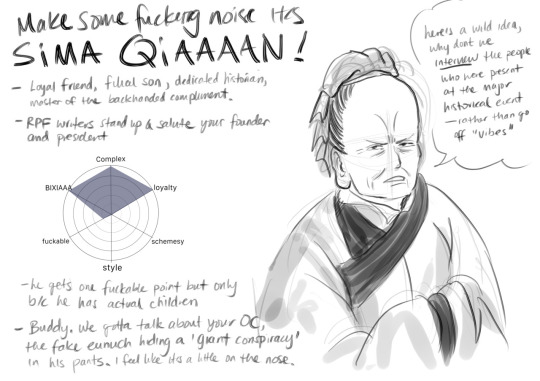 Make some fucking noise its
SiMA QiAAAAN!
- Loyal friend, filial son, dedicated historian,
master of the backhanded compliment.
- RPF writers stand up & salute your founder
and president
Complex
BIXIAAA
loyalty
fuckable
schemesy
style
- he gets one fuckable point but only
b/c he has actual children
- Buddy. We gotta talk about your OC,
the fake eunuch hiding a 'giant conspiracy'
in his pants. I feel like its a little on the nose.
here's a wild idea,
why dont we
interview the people
who were present
at the major
historical event
- rather than go
off "vibes"